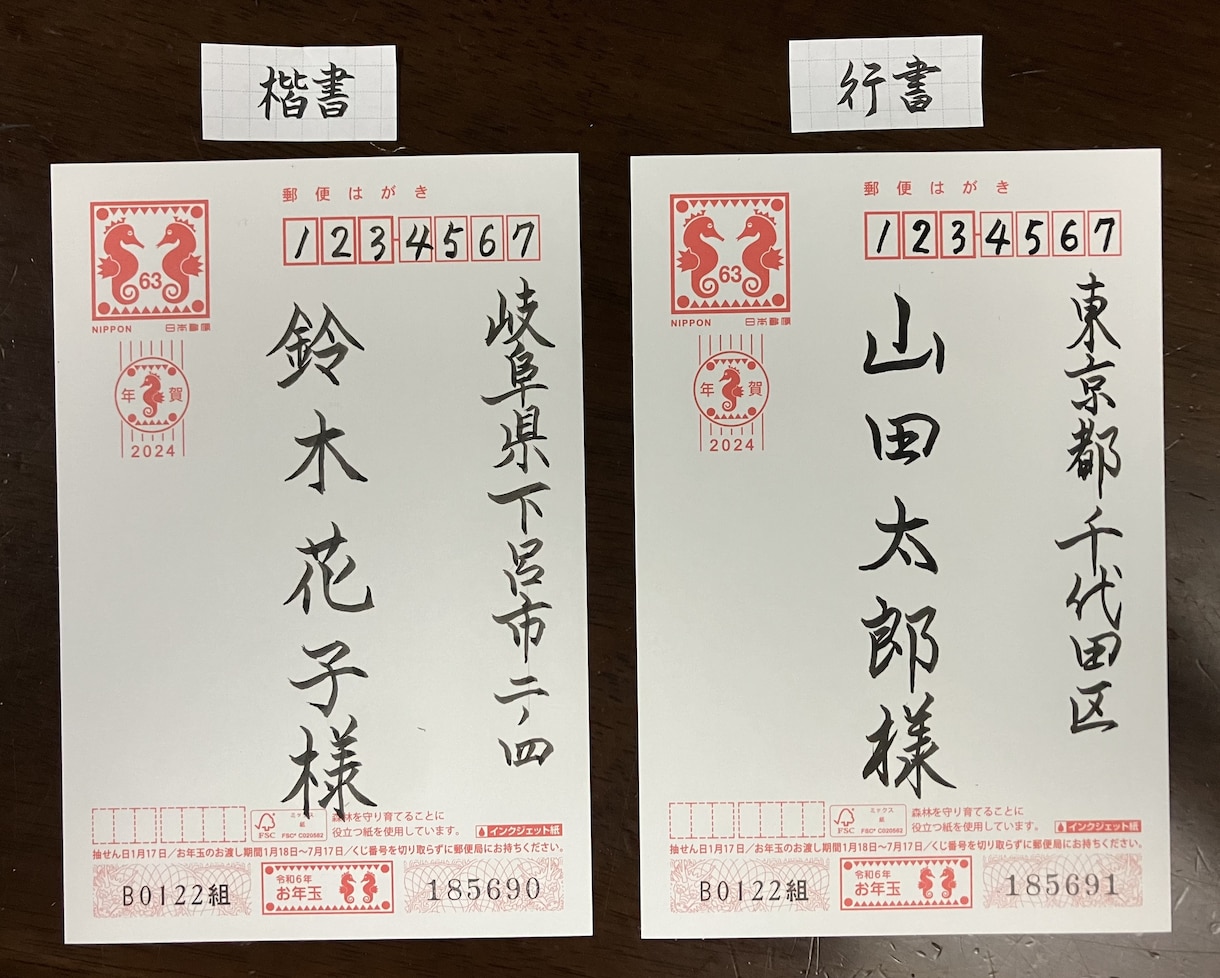 楷書
郵便はがき
1234567
63
NIPPON
日本郵便
年賀
2024
岐阜県下呂市二ノ四
鈴木花子様
FSC
ミックス
紙
FSC® C020562
森林を守り育てることに
役立つ紙を使用しています。
インクジェット紙
抽せん日1月17日／お年玉のお渡し期間1月18日〜7月17日／くじ番号を切り取らずに郵便局にお持ちください。
B0122組
令和6年
お年玉
185690
行書
郵便はがき
1234567
63
NIPPON
日本郵便
年賀
2024
東京都千代田区
山田太郎様
FSC
ミックス
紙
FSC® C020562
森林を守り育てることに
役立つ紙を使用しています。
インクジェット紙
抽せん日1月17日／お年玉のお渡し期間1月18日〜7月17日／くじ番号を切り取らずに郵便局にお持ちください。
B0122組
令和6年
お年玉
185691